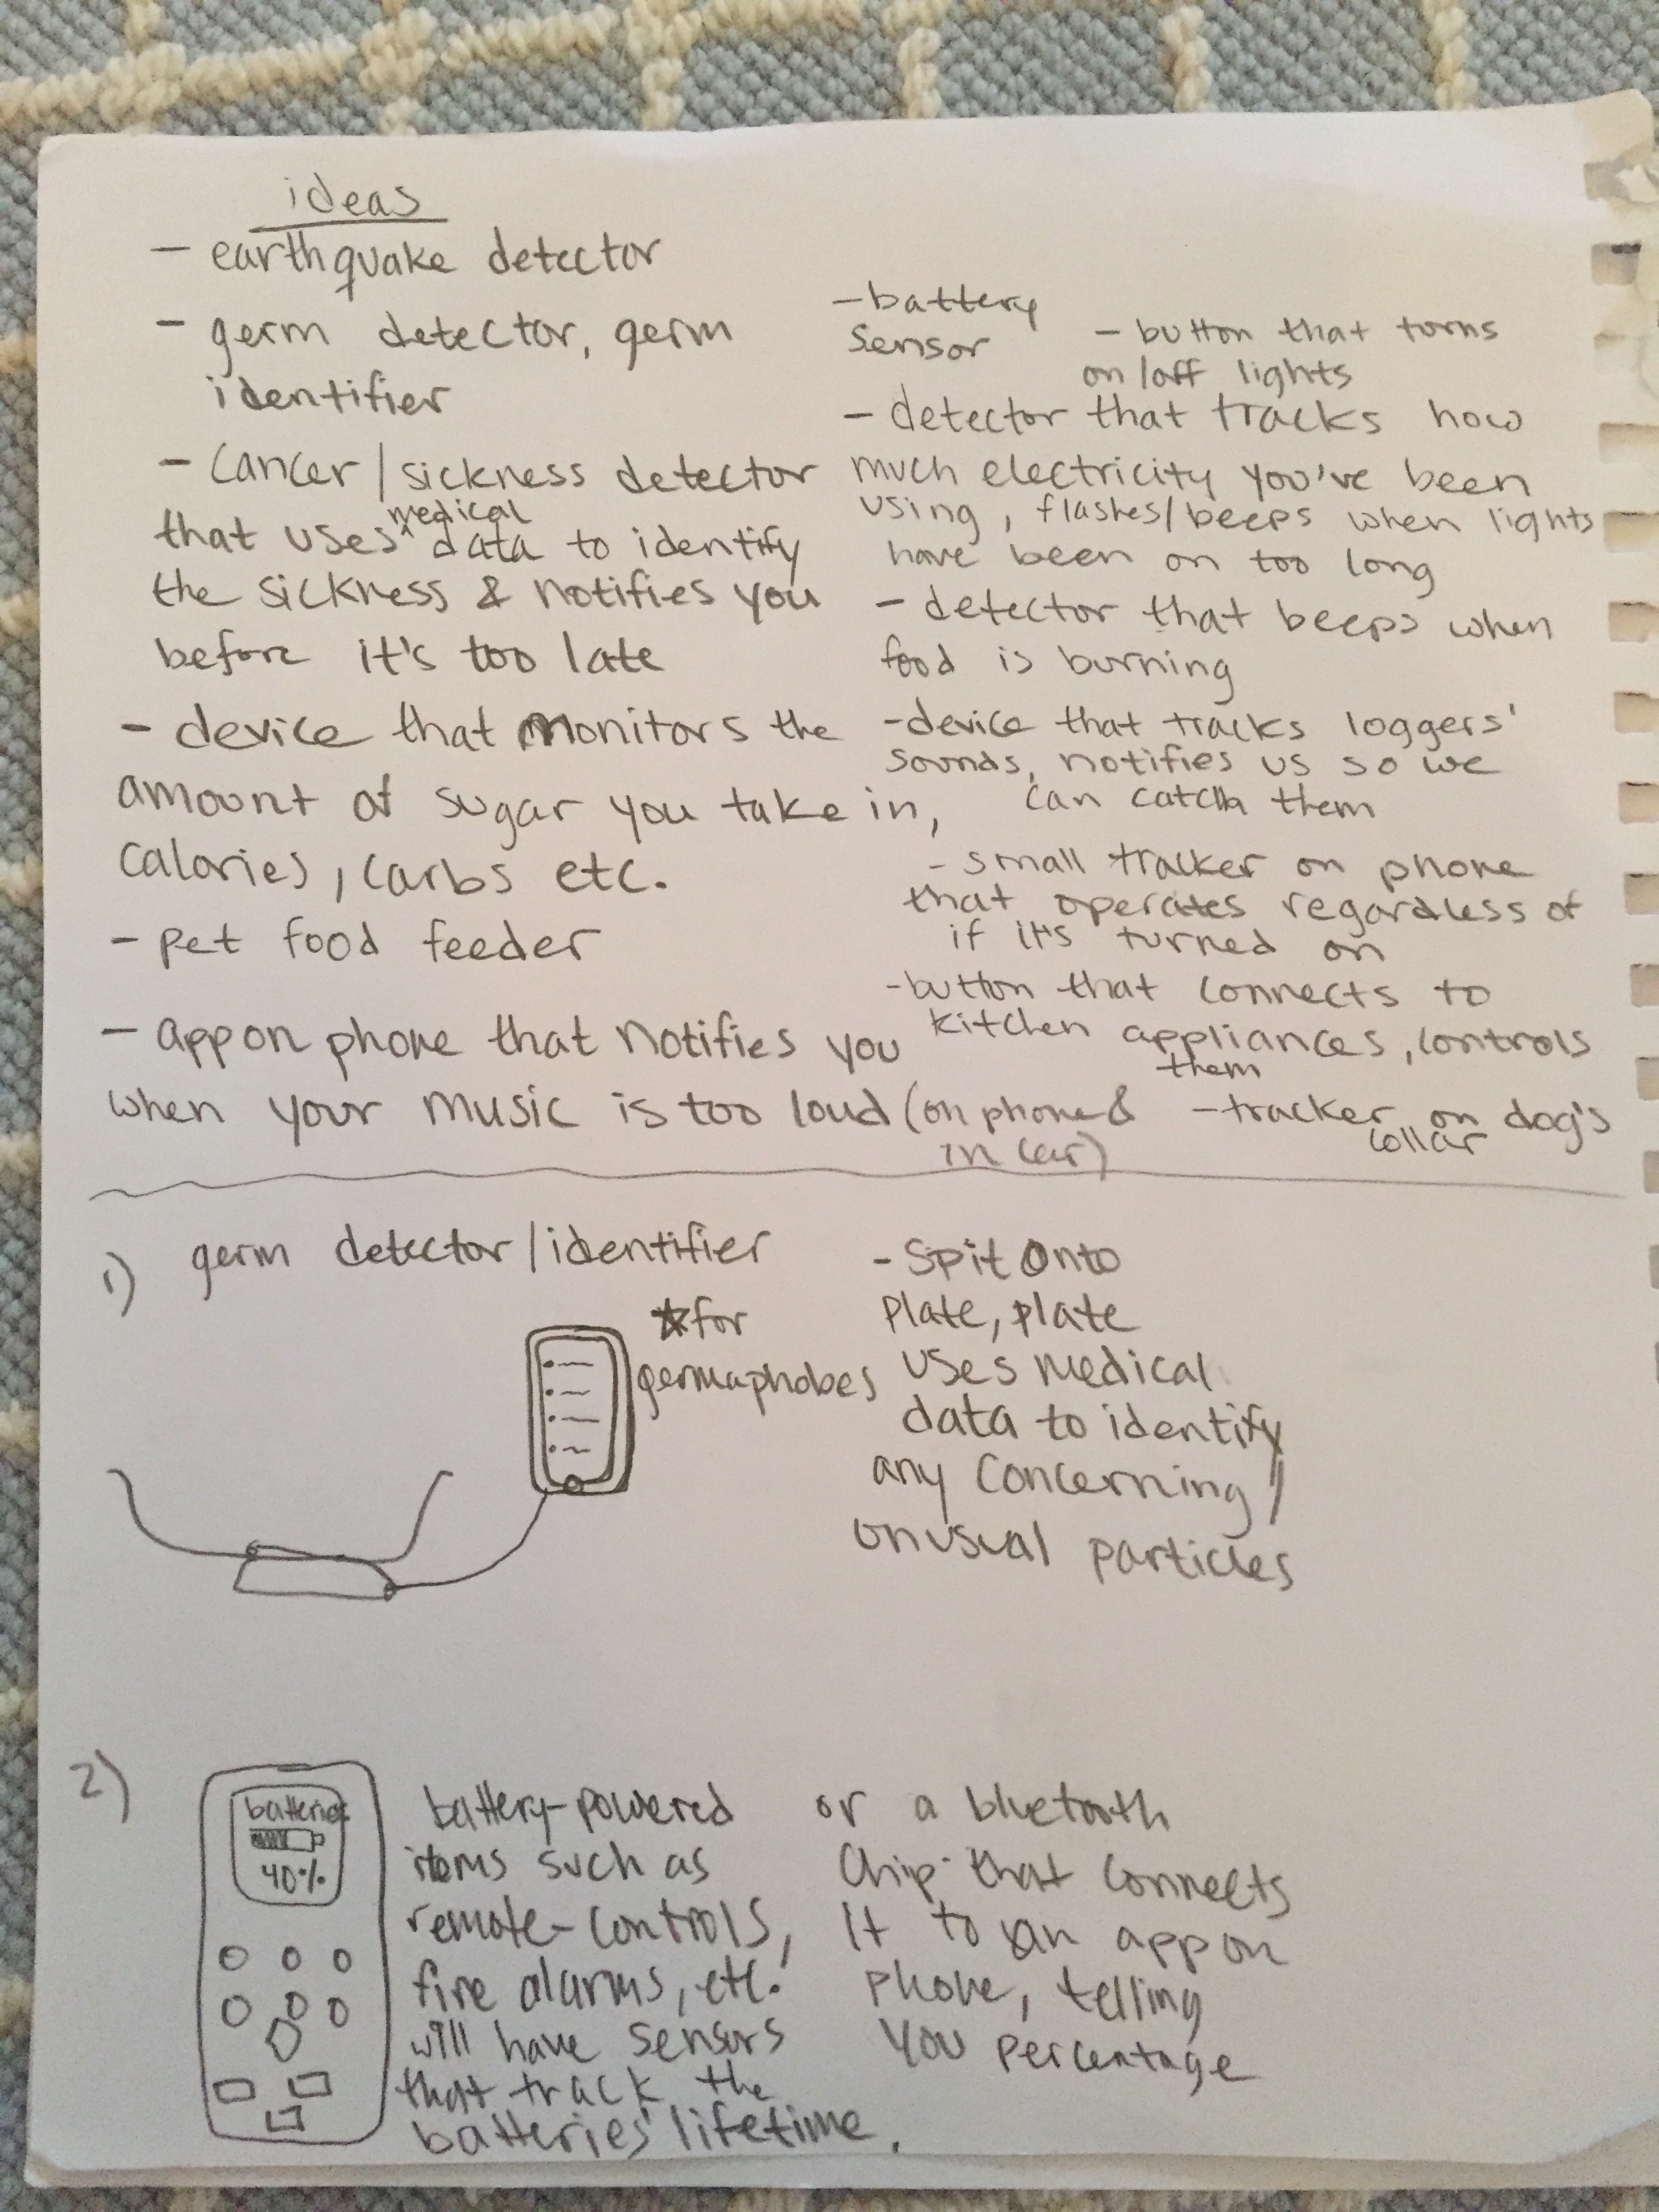 ideas
- earthquake detector
- germ detector, germ
identifier
- Cancer/sickness detector
that uses ^medical data to identify
the sickness & notifies you
before it's too late
- device that monitors the
amount of sugar you take in,
calories, carbs etc.
- pet food feeder
- app on phone that notifies you
when your music is too loud (on phone &
in car)
- battery
sensor
- button that turns
on/off lights
- detector that tracks how
much electricity you've been
using, flashes/beeps when lights
have been on too long
- detector that beeps when
food is burning
- device that tracks loggers'
sounds, notifies us so we
can catch them
- small tracker on phone
that operates regardless of
if it's turned on
- button that connects to
kitchen appliances, controls
them
- tracker on dog's
collar
1) germ detector/identifier
☆for
germaphobes
- Spit onto
plate, plate
uses medical
data to identify
any concerning/
unusual particles
2)
batteries
40%
battery-powered
items such as
remote-controls,
fire alarms, etc.
will have sensors
that track the
batteries' lifetime.
or a bluetooth
chip that connects
it to an app on
phone, telling
you percentage